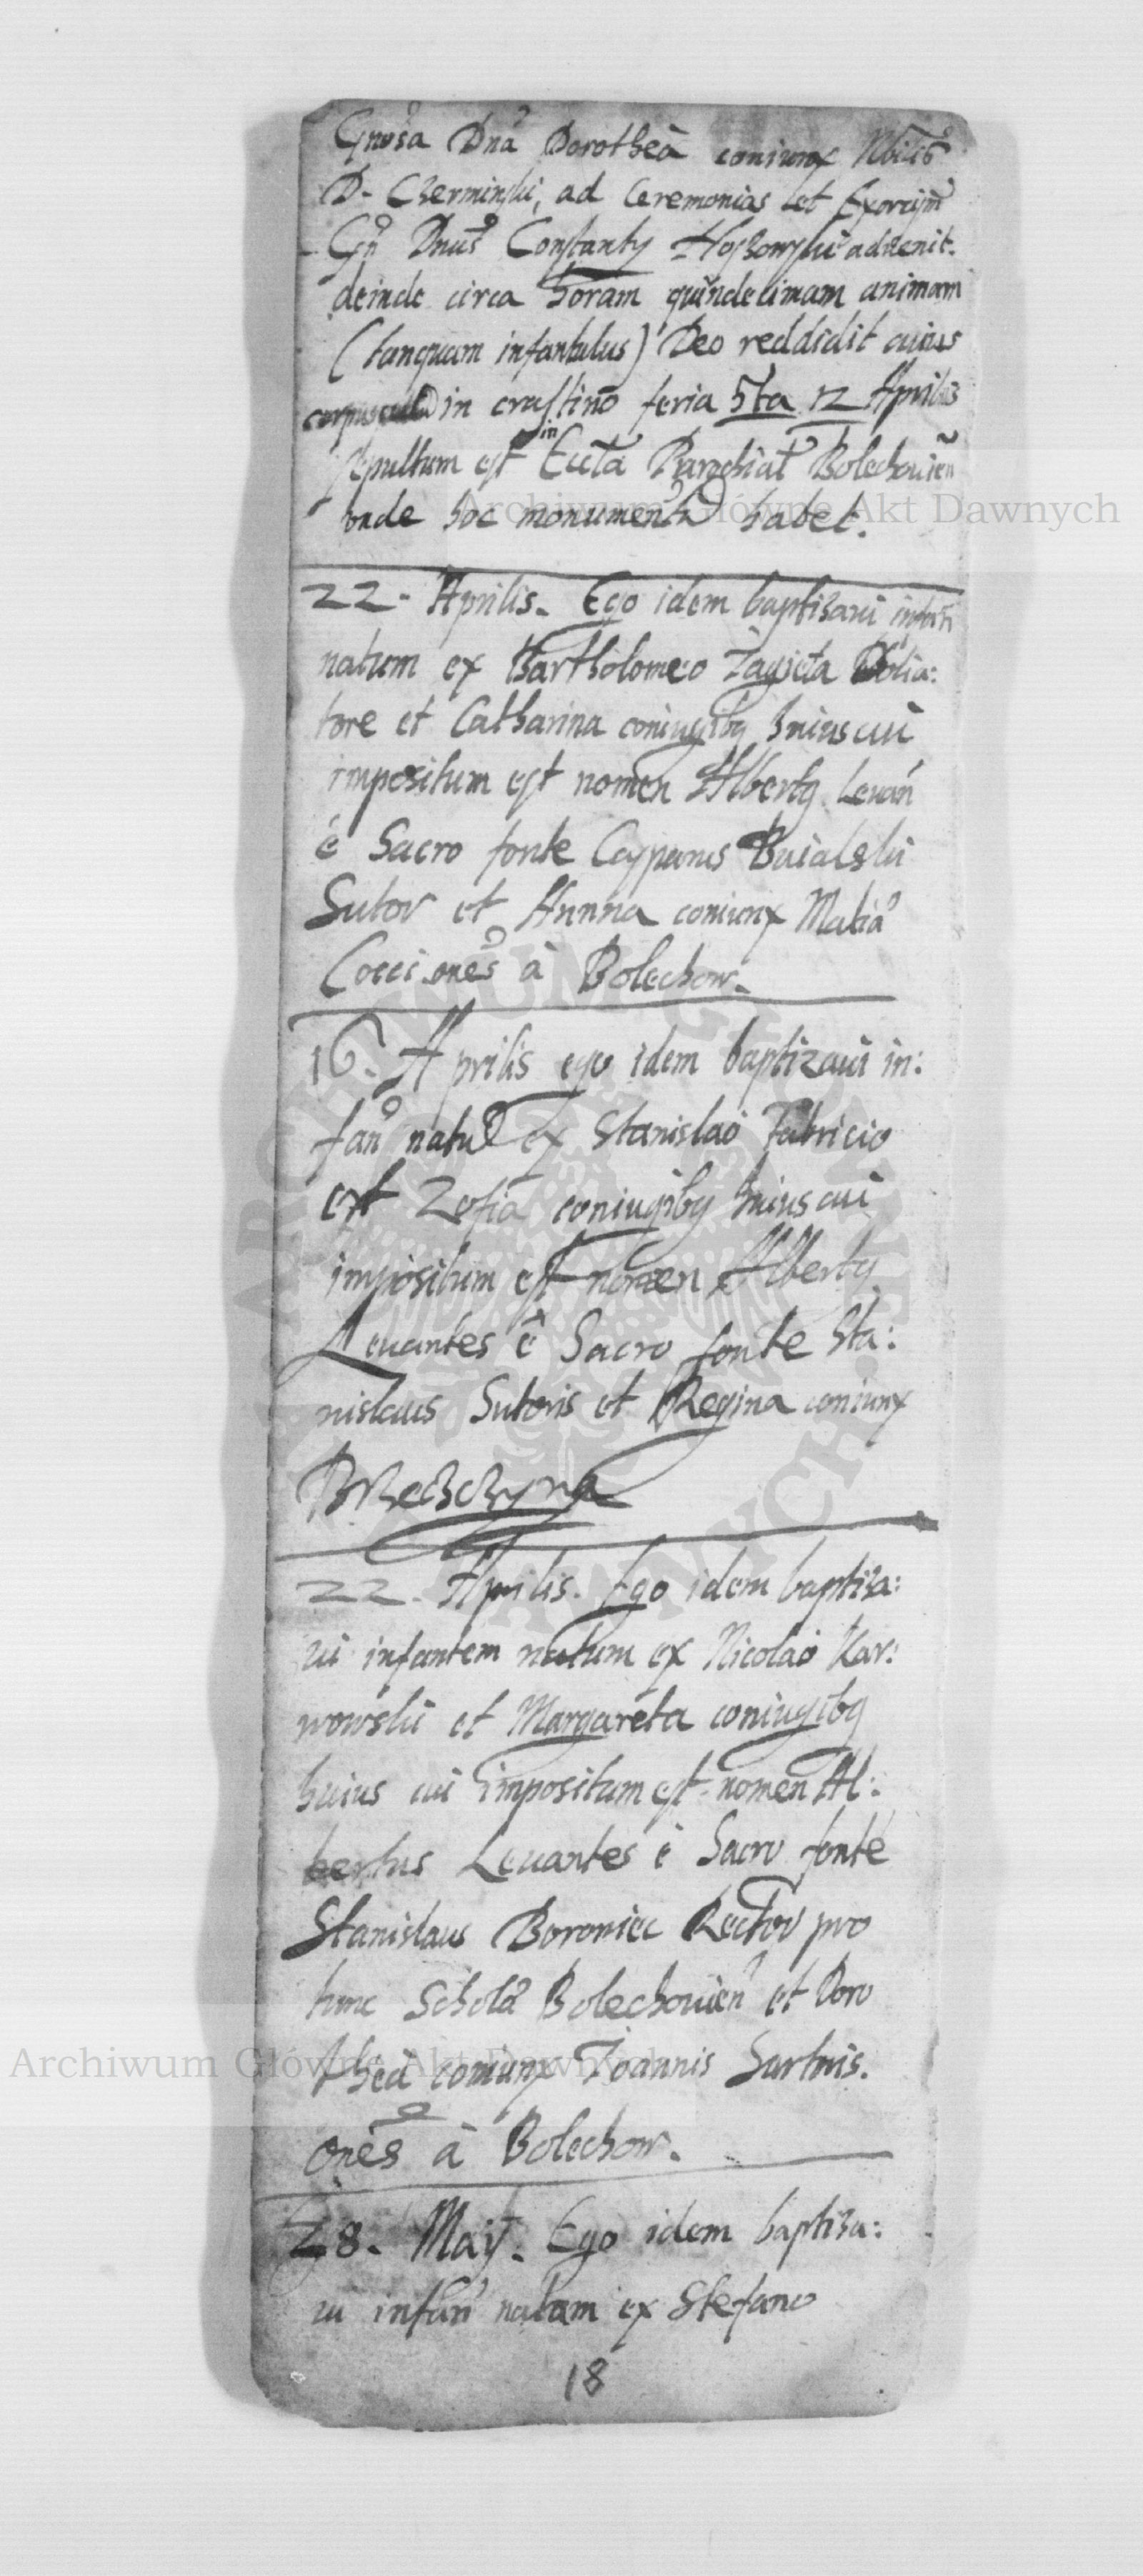 Gnosa Dna Dorothea coniunx Nbilis
D. Cherminski, ad Ceremonias et Exorcism
Gn Dnus Constanty Hoszowski aduenit.
deinde circa horam quindecimam animam
(tanquam infantulus) Deo reddidit cuius
corpusculu in crastino feria 5ta 12 Aprilis
sepultum est in Eccta Parochiat Bolechouien
vnde hoc monumentu habet.
22. Aprilis. Ego idem baptizaui infan
natum ex Bartholomeo Zagieta Dolia:
tore et Catharina coniugibq huius cui
impositum est nomen Albertq. Leuan
é Sacro fonte Casparus Buialski
Sutor et Annna coniunx Matia
Cocci ones à Bolechow.
16. Aprilis ego idem baptizaui in:
fan natu ex Stanislao Fabricio
et Zofia coniugibq huius cui
impositum est nomen Albertq
Leuantes e Sacro fonte Sta:
nislaus Sutoris et Regina coniunx
Brzechczyna
22. Aprilis. Ego idem baptiza:
ui infantem natum ex Nicolao Kar:
wowski et Margareta coniugibq
huius cui impositum est nomen Al:
bertus Leuantes è Sacro fonte
Stanislaus Boroniec Rector pro
tunc Schola Bolechouien et Doro
thea coniunx Joannis Sartoris.
ones à Bolechow.
28. Maij. Ego idem baptiza:
ui infan natam ex Stefano
18
Archiwum Główne Akt Dawnych
Archiwum Główne Akt Dawnych